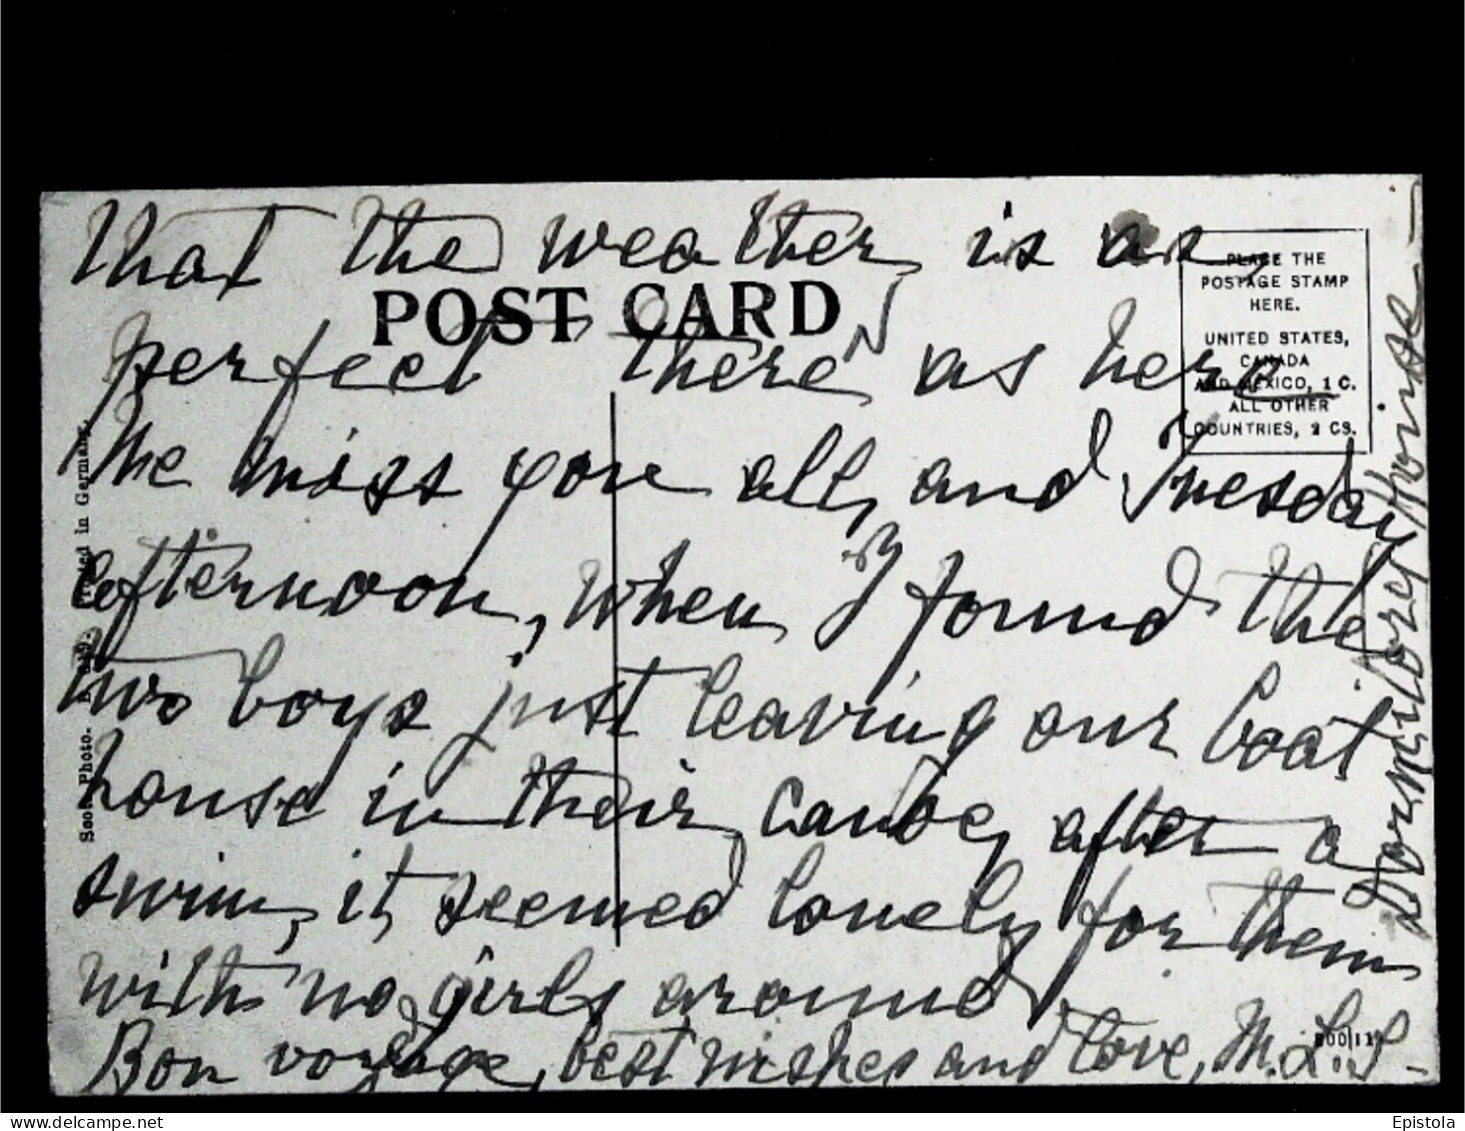 that the weather is as
POST CARD
perfect there as here
We miss you all, and Tuesday
afternoon, when I found the
two boys just leaving our boat
house in their canoe, after a
swim, it seemed lonely for them
with no girls around
Bon voyage, best wishes and love, M. L. S.
PLACE THE
POSTAGE STAMP
HERE.
UNITED STATES,
CANADA
AND MEXICO, 1 C.
ALL OTHER
COUNTRIES, 2 CS.
Photo.
Printed in Germany.
Epistola